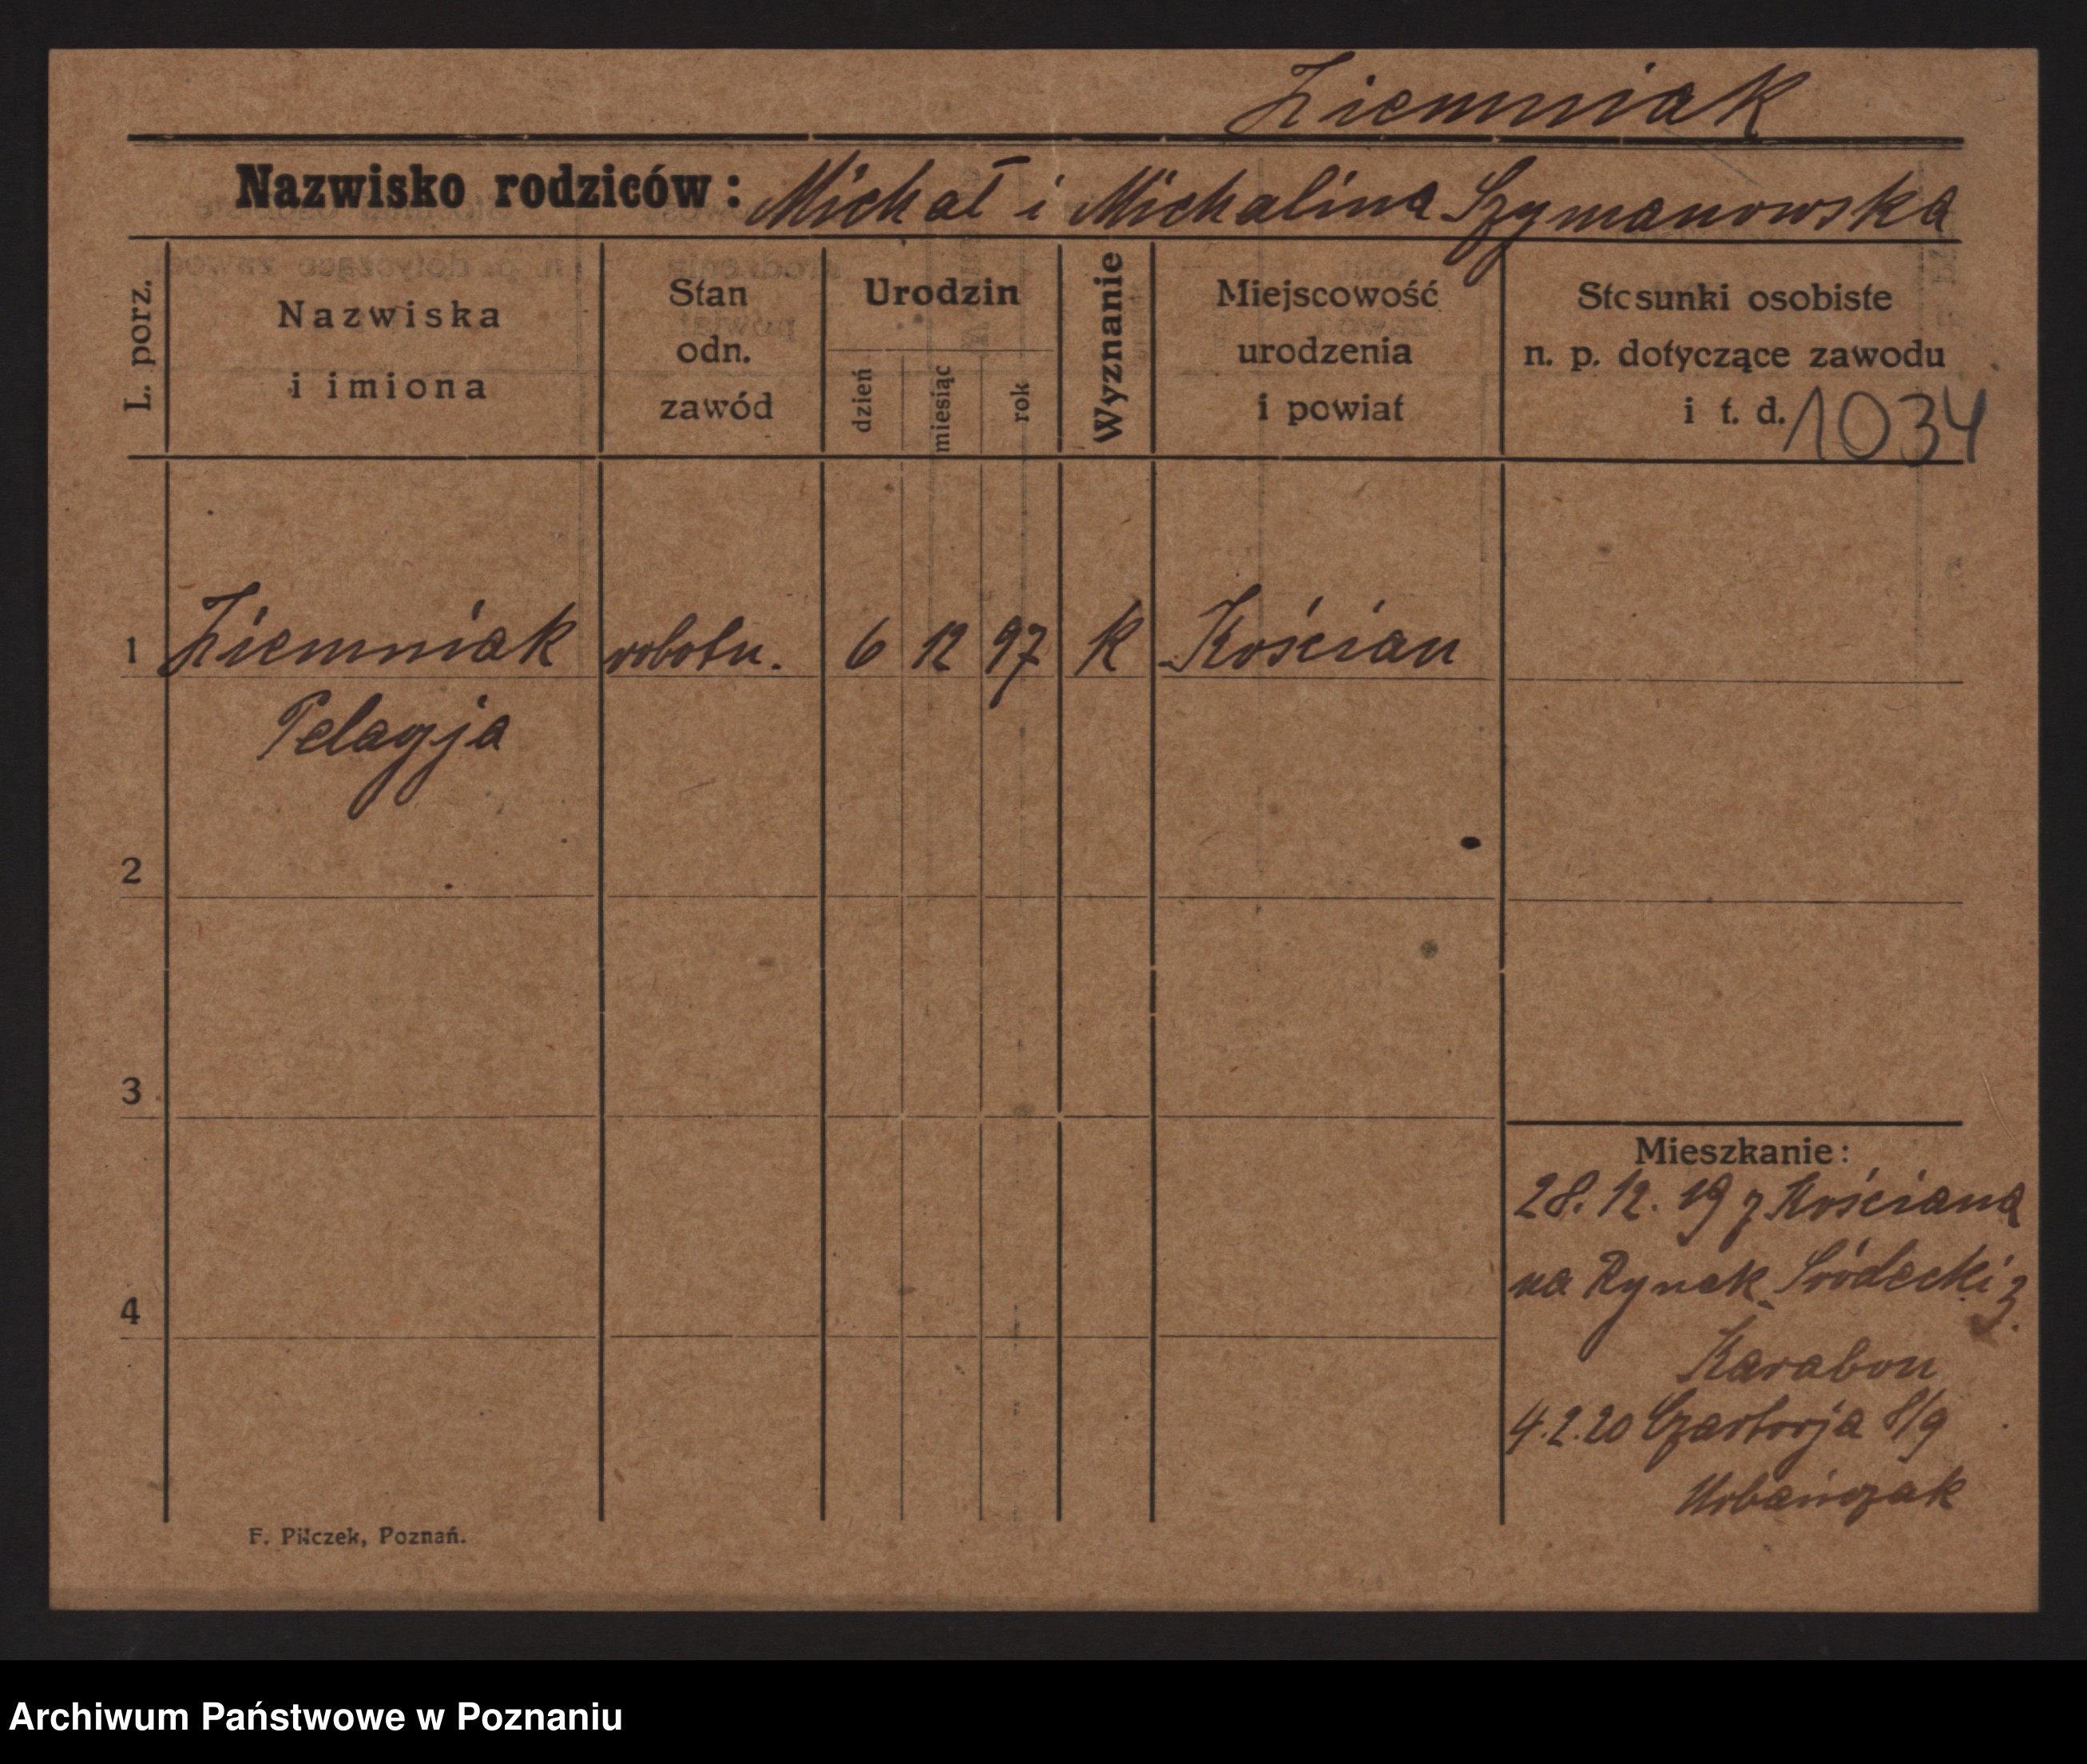 Ziemniak
Nazwisko rodziców: Michał i Michalina Szymanowska
L. porz.
Nazwiska
i imiona
Stan
odn.
zawód
Urodzin
dzień
miesiąc
rok
Wyznanie
Miejscowość
urodzenia
i powiat
Stosunki osobiste
n. p. dotyczące zawodu
i t. d. 1034
1 Ziemniak robotn. 6 12 97 K Kościan
Pelagja
2
3
4
Mieszkanie:
28.12.19 z Kościana
na Rynek Śródecki 3.
Karabon
4.2.20 Czartorja 8/9
Urbańczak
F. Pilczek, Poznań.
Archiwum Państwowe w Poznaniu